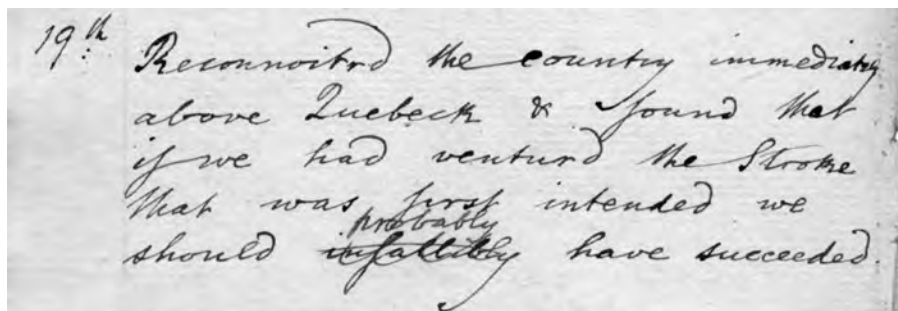 19th Reconnoitrd the country immediately
above Quebeck & found that
if we had venturd the Stroke
that was first intended we
probably
should infallibly have succeeded.